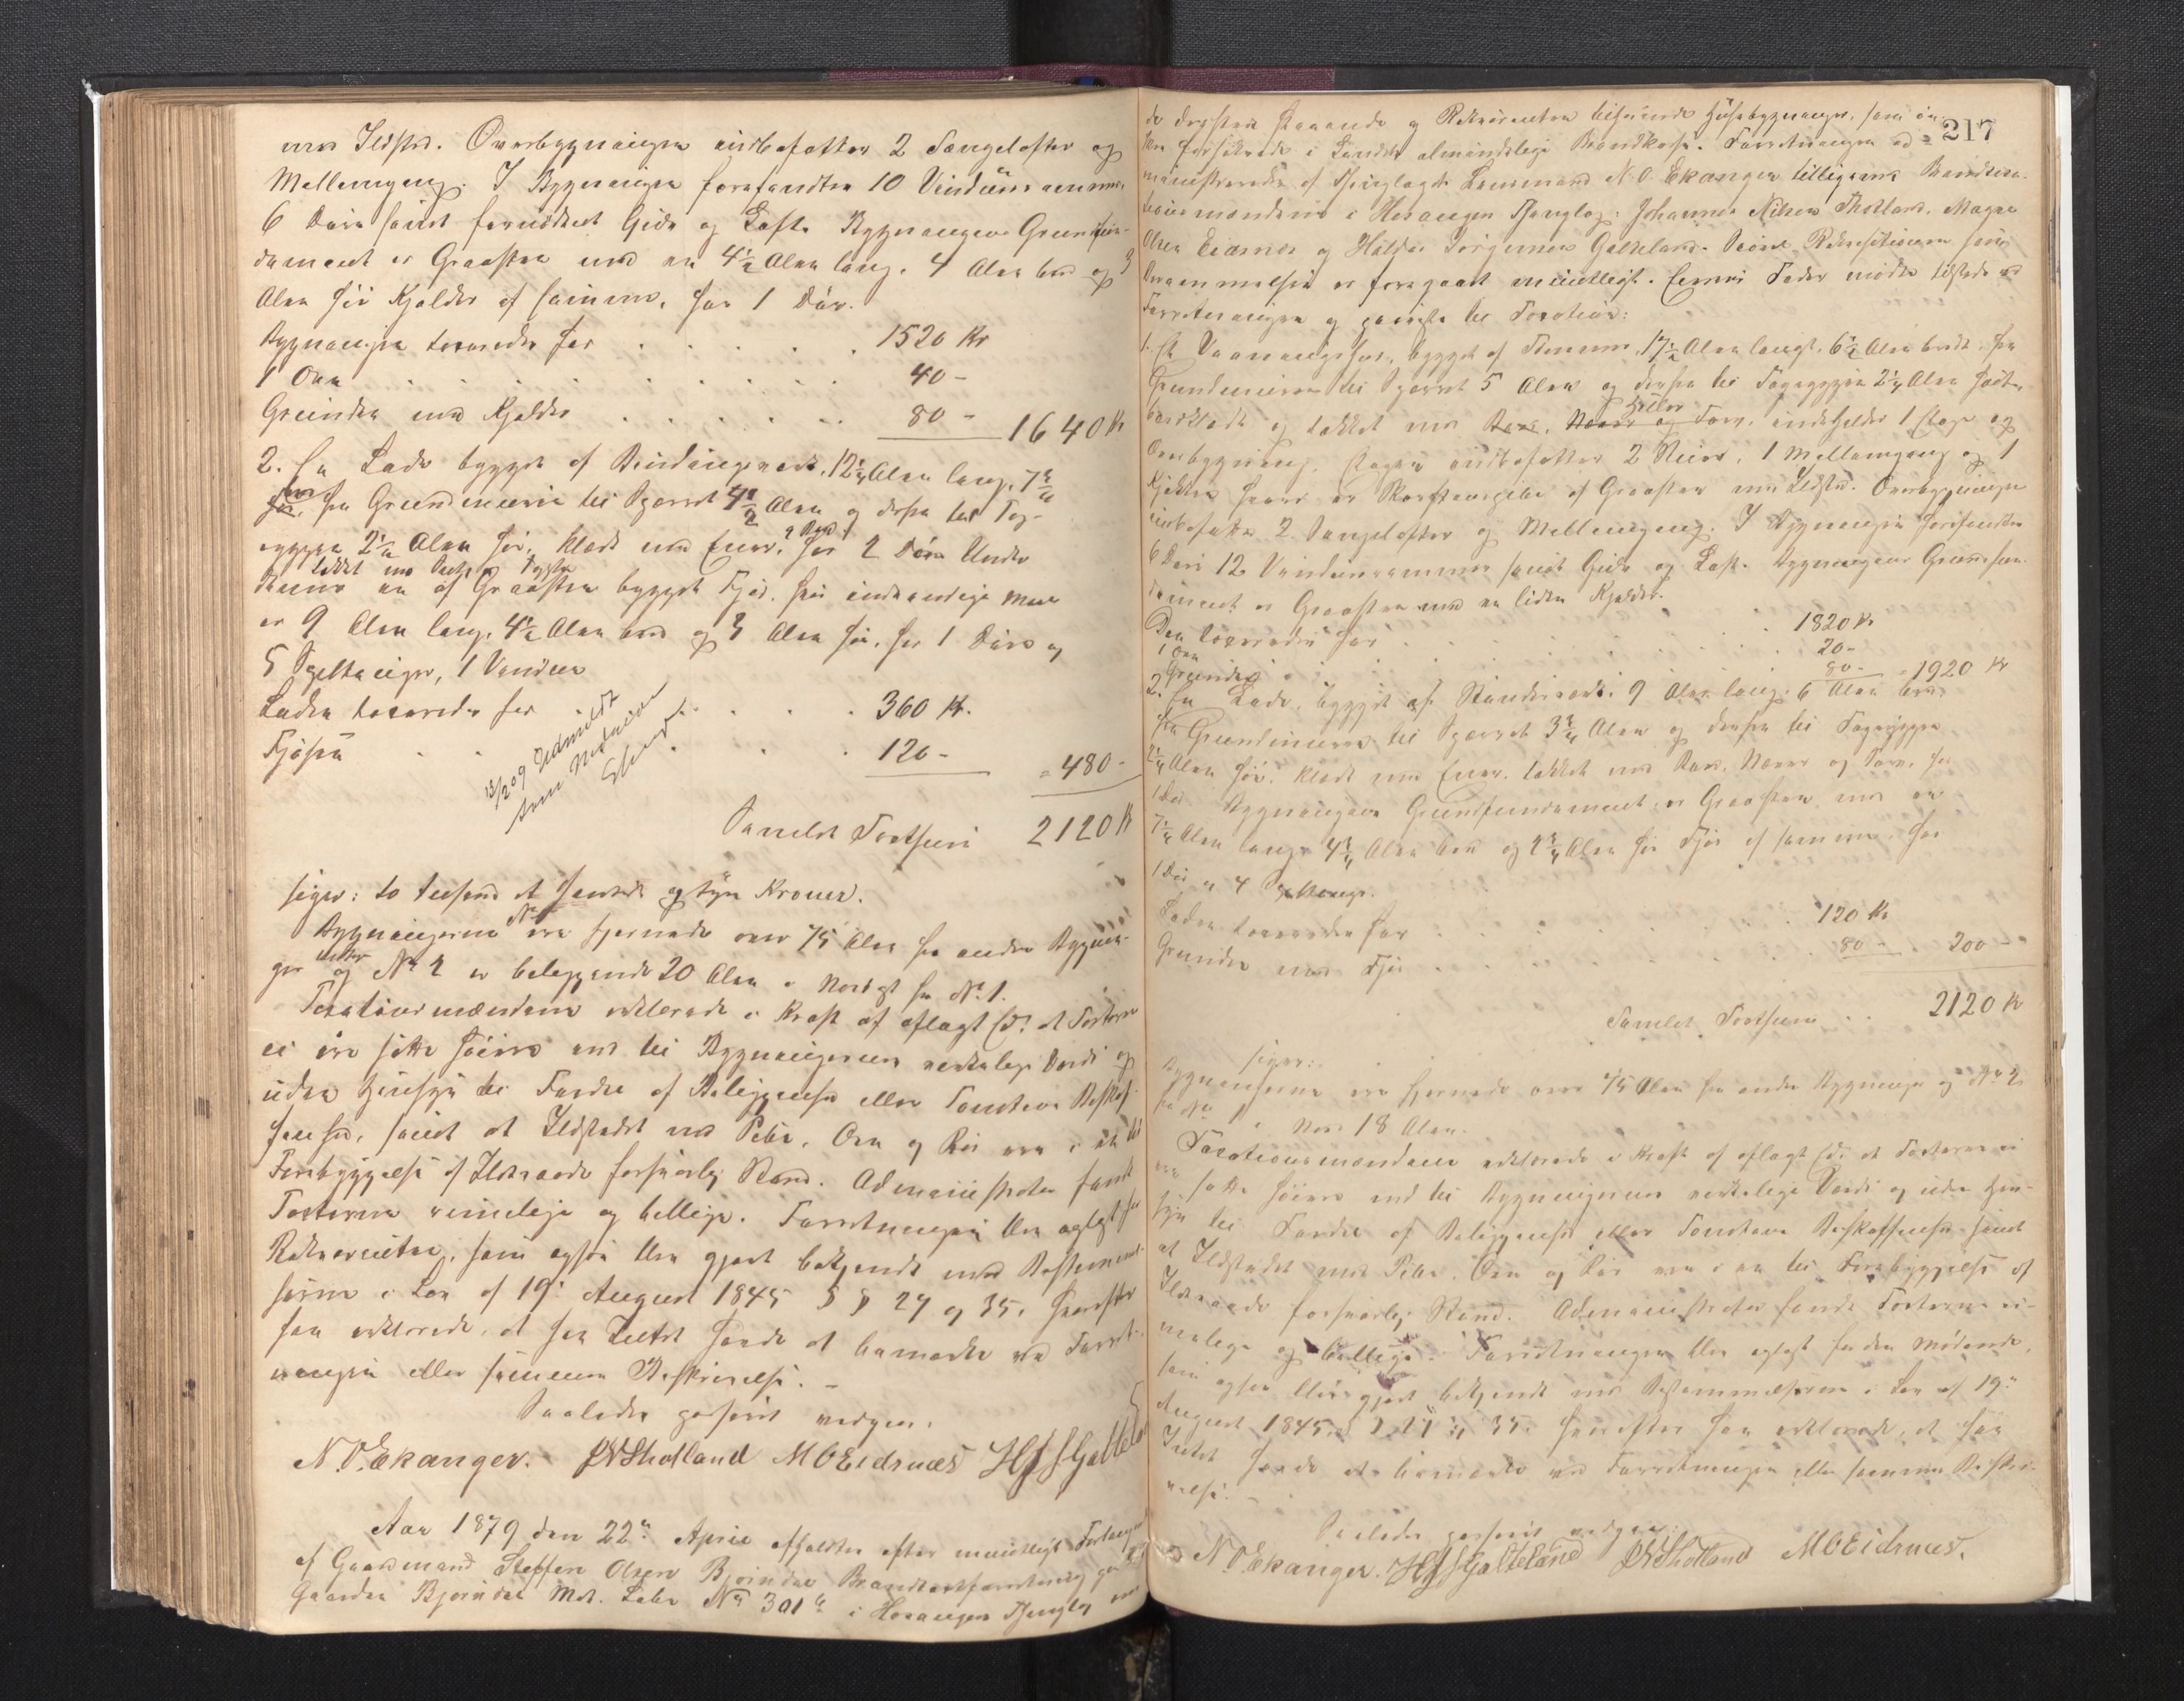 med Ildsted. Overbygningen indbefatter 2 Sengelofter og
Mellemgang. I Bygningen forefandtes 10 Vinduesrammer,
6 Døre samt fornødent Gulv og Loft. Bygningens Grundfun-
dament er Graasten med en 4½ Alen lang, 4 Alen bred og 3
Alen høi Kjelder af samme, har 1 Dør.
Bygningen taxeredes for . . . . . 1520 Kr
1 Ovn . . . . . . . . 40 –
Grunden med Kjelder . . . . . . 80 – 1640 Kr
2. En Lade bygget af Bindingsverk, 12½ Alen lang, 7¾
bred, fra Grundmuren til Sperret 4½ Alen og derfra til Tag-
ryggen 2½ Alen høi, klædt med Furu, har 2 Døre Under
tækket med
denne en af Graasten bygget Fjøs. Den indvendige Muur
er 9 Alen lang, 4½ Alen bred og 3 Alen høi, har 1 Dør og
5 Spiltauger, 1 Vindue
Laden taxeredes for . . . . 360 Kr.
Fjøsen . . . . . 120 – = 480 –
13/2 09 Udmeldt
Samlet Taxtsum 2120 Kr
siger: to tusend et hundrede og tyve Kroner.
Bygningerne No 1 ere fjernede over 75 Alen fra andre Bygnin-
ger og No 2 er beliggende 20 Alen i Nordost fra No 1.
Taxationsmændene erklærede i Kraft af aflagt Ed: at Taxterne
ei ere satte høiere end til Bygningernes virkelige Værdi og
uden Hensyn til Fordel af Beliggenhed eller Tomtens Beskaf-
fenhed, samt at Ildstedet med Pibe, Ovn og Rør ere i en til
Forebyggelse af Ildsvaade forsvarlig Stand. Administrator fandt
Taxterne rimelige og billige. Forretningen blev oplæst for
Rekvirenten, som ogsaa blev gjort bekjendt med Bestemmel-
serne i Lov af 19de August 1845 § § 27 og 35, hvorefter
han erklærede, at han Intet havde at bemærke ved Forret-
ningen eller sammes Beskrivelse. –
Saaledes passeret vedgaar.
N. O. Ekanger. JNSkotland MOEidsnæs HJSGalteland
Aar 1879 den 22de April afholdtes efter mundtligt Forlangende
af Gaardmand Steffen Olsen Bjørndal Brandtaxtforretning paa
Gaarden Bjørndal Mat. Løbe No 301a i Hosanger Thinglag over
217
de dersteds staaende og Rekvirenten tilhørende Huusbygninger, som øn-
kes forsikrede i Landets almindelige Brandkasse. Forretningen ad-
ministreredes af Thinglagets Lensmand N. O. Ekanger tilligemed Brandtaxa-
tionsmændene i Hosanger Thinglag: Johannes Nilsen Skotland, Magne
Olsen Eidsnæs og Haldor Jørgensen Galteland.
Forretningen og gaves til Taxation:
1. Et Vaaningshus, bygget af Tømmer, 17½ Alen langt, 6½ Alen bredt, fra
Grundmuren til Sperret 5 Alen og derfra til Tagryggen 2¼ Alen høit,
bordklædt og tækket med Heller Næver og Torv, indeholder 1 Etage og
Overbygning. Etagen indbefatter 2 Stuer, 1 Mellemgang og 1
Kjøkken hvori er Skorstenspibe af Graasten med Ildsted. Overbygningen
indbefatter 2 Sengelofter og Mellemgang. I Bygningen forefandtes
6 Døre 12 Vinduesrammer samt Gulv og Loft. Bygningens Grundfun-
dament er Graasten med en liden Kjelder.
Den taxeredes for . . . . . 1820 Kr
1 Ovn . . . . 20 –
Grunden . . . . 80 – = 1920 Kr
2. En Lade, bygget af Stænderværk, 9 Alen lang, 6 Alen bred
fra Grundmuren til Sperret 3¾ Alen og derfra til Tagryggen
2¼ Alen høi, klædt med Furu, tækket med Bord, Næver og Torv, har
1 Dør. Bygningens Grundfundament er Graasten med en
7½ Alen lang, 4¾ Alen bred og 2¾ Alen høi Fjøs af samme, har
1 Dør og 4 Spiltauge.
Laden taxeredes for . . . . 120 Kr
Grunden med Fjøs . . . . 80 – 200 –
Samlet Taxtsum . . 2120 Kr
siger:
Bygningerne ere fjernede over 75 Alen fra andre Bygninger og No 2
fra No 1 i Nord 18 Alen.
Taxationsmændene erklærede i Kraft af aflagt Ed: at Taxterne ei
ere satte høiere end til Bygningernes virkelige Værdi og uden Hen-
syn til Fordel af Beliggenhed eller Tomtens Beskaffenhed samt
at Ildstedet med Pibe, Ovn og Rør ere i en til Forebyggelse af
Ildsvaade forsvarlig Stand. Administrator fandt Taxterne ri-
melige og billige. Forretningen blev oplæst for den mødende,
som ogsaa blev gjort bekjendt med Bestemmelserne i Lov af 19de
August 1845, § § 27 og 35. hvorefter han erklærede, at han
Intet havde at bemærke ved Forretningen eller sammes Beskri-
velse. –
Saaledes passeret vedgaar:
N O Ekanger. HJSGalteland JNSkotland MOEidsnæs.